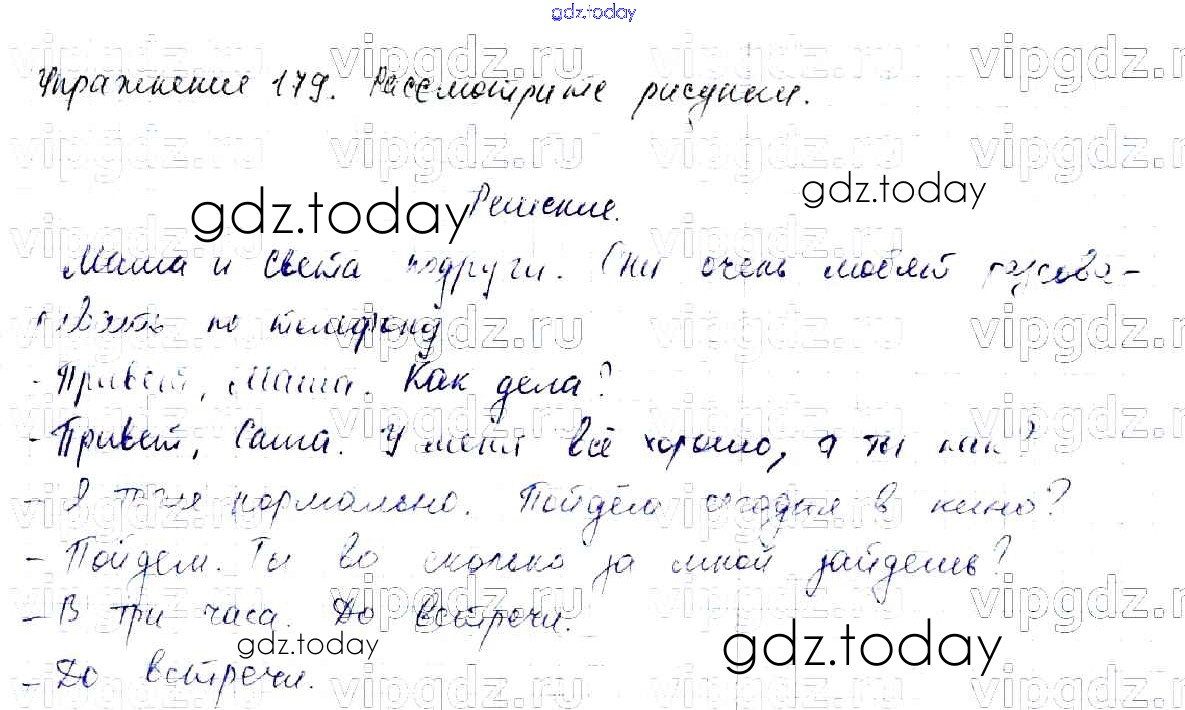 gdz.today
Упражнение 179. Рассмотрите рисунки.
gdz.today
Решение.
gdz.today
Маша и Света подруги. Они очень любят разгова-
ривать по телефону
- Привет, Маша. Как дела?
- Привет, Саша. У меня всё хорошо, а ты как?
- Я тоже нормально. Пойдём сегодня в кино?
- Пойдем. Ты во сколько за мной зайдешь?
- В три часа. До встречи.
gdz.today
gdz.today
- До встречи.
vipgdz.ru